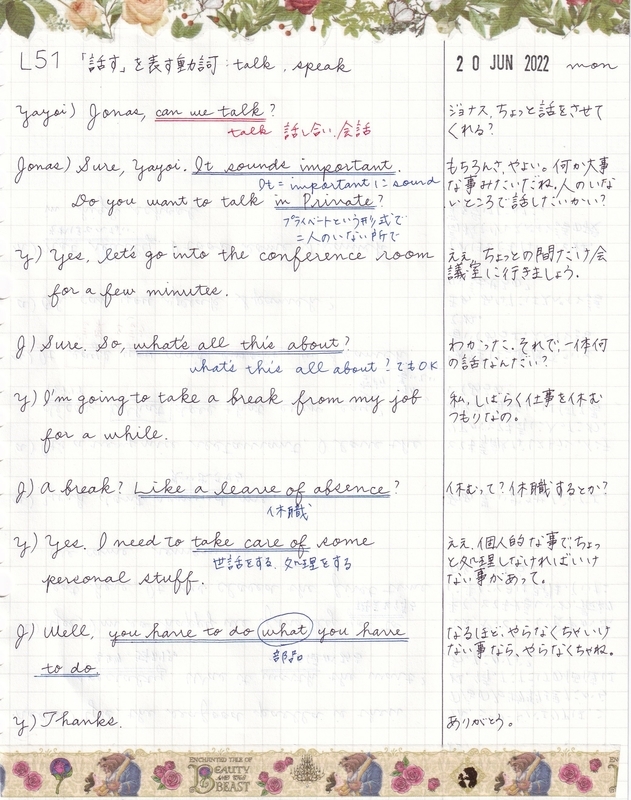 L51 「話す」を表す動詞：talk, speak
20 JUN 2022 mon
Yayoi) Jonas, can we talk?
talk 話し合い, 会話
ジョナス, ちょっと話をさせて
くれる?
Jonas) Sure, Yayoi. It sounds important.
It = important に sound
Do you want to talk in Private?
プライベートという形式で
二人のいない所で
もちろんさ, やよい。何か大事
な事みたいだね。人のいな
いところで話したいかい?
Y) Yes, let's go into the conference room
for a few minutes.
ええ, ちょっとの間だけ会
議室に行きましょう.
J) Sure. So, what's all this about?
what's this all about? でもOK
わかった. それで, 一体何
の話なんだい?
Y) I'm going to take a break from my job
for a while.
私, しばらく仕事を休む
つもりなの。
J) A break? Like a leave of absence?
休職
休むって? 休職するとか?
Y) Yes. I need to take care of some
世話をする, 処理をする
personal stuff.
ええ, 個人的な事で, ちょっ
と処理しなければいけ
ない事があって。
J) Well, you have to do what you have
部品
to do.
なるほど, やらなくちゃいけ
ない事なら, やらなくちゃね。
Y) Thanks.
ありがとう。
ENCHANTED TALE OF
BEAUTY
AND THE
BEAST